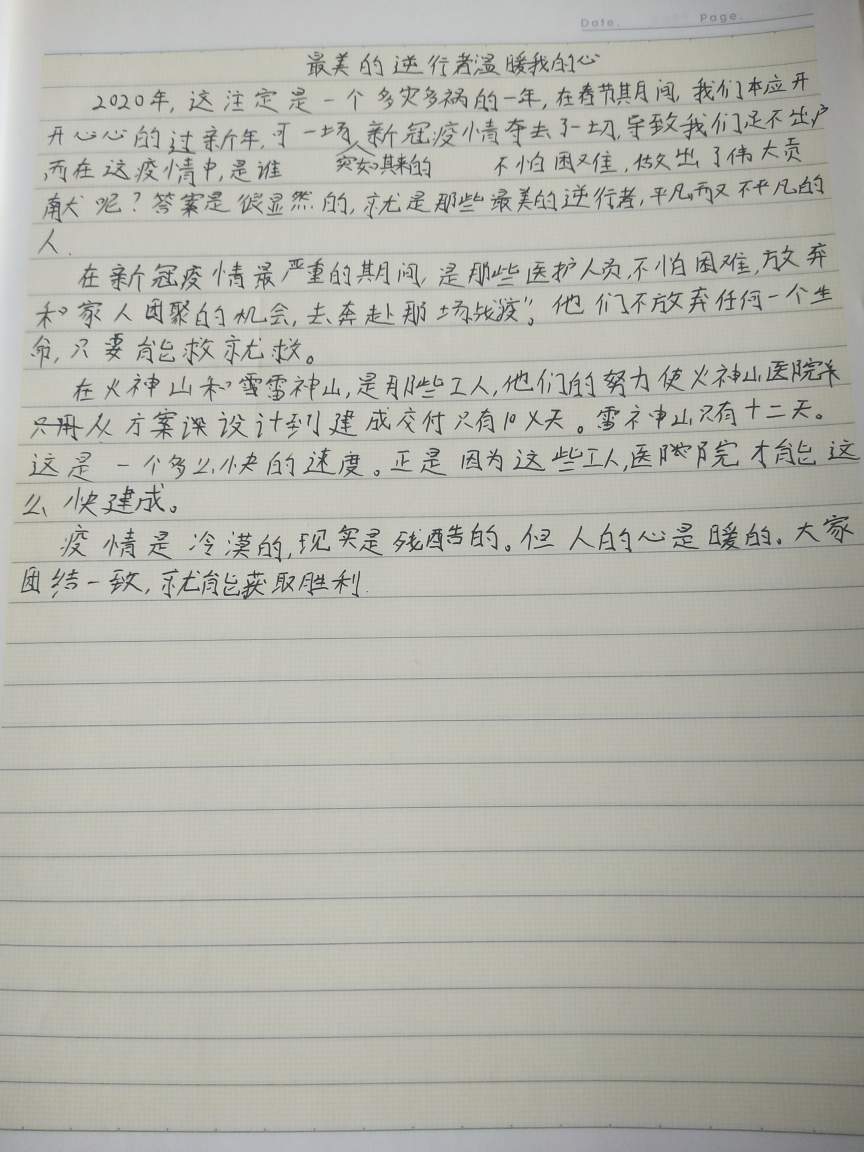 Date. Page.
最美的逆行者温暖我的心
2020年,这注定是一个多灾多祸的一年,在春节期间,我们本应开
开心心的过新年,可一场新冠疫情夺去了一切,导致我们足不出户
而在这疫情中,是谁 突如其来的 不怕困难,做出了伟大贡
献呢?答案是很显然的,就是那些最美的逆行者,平凡而又不平凡的
人.
在新冠疫情最严重的期间,是那些医护人员,不怕困难,放弃
和家人团聚的机会,去奔赴那场“战疫”。他们不放弃任何一个生
命,只要能救就救。
在火神山和雷神山,是那些工人,他们的努力使火神山医院
从方案设计到建成交付只有10天。雷神山只有十二天。
这是一个多么快的速度。正是因为这些工人,医院才能这
么快建成。
疫情是冷漠的,现实是残酷的。但人的心是暖的。大家
团结一致,就能获取胜利.